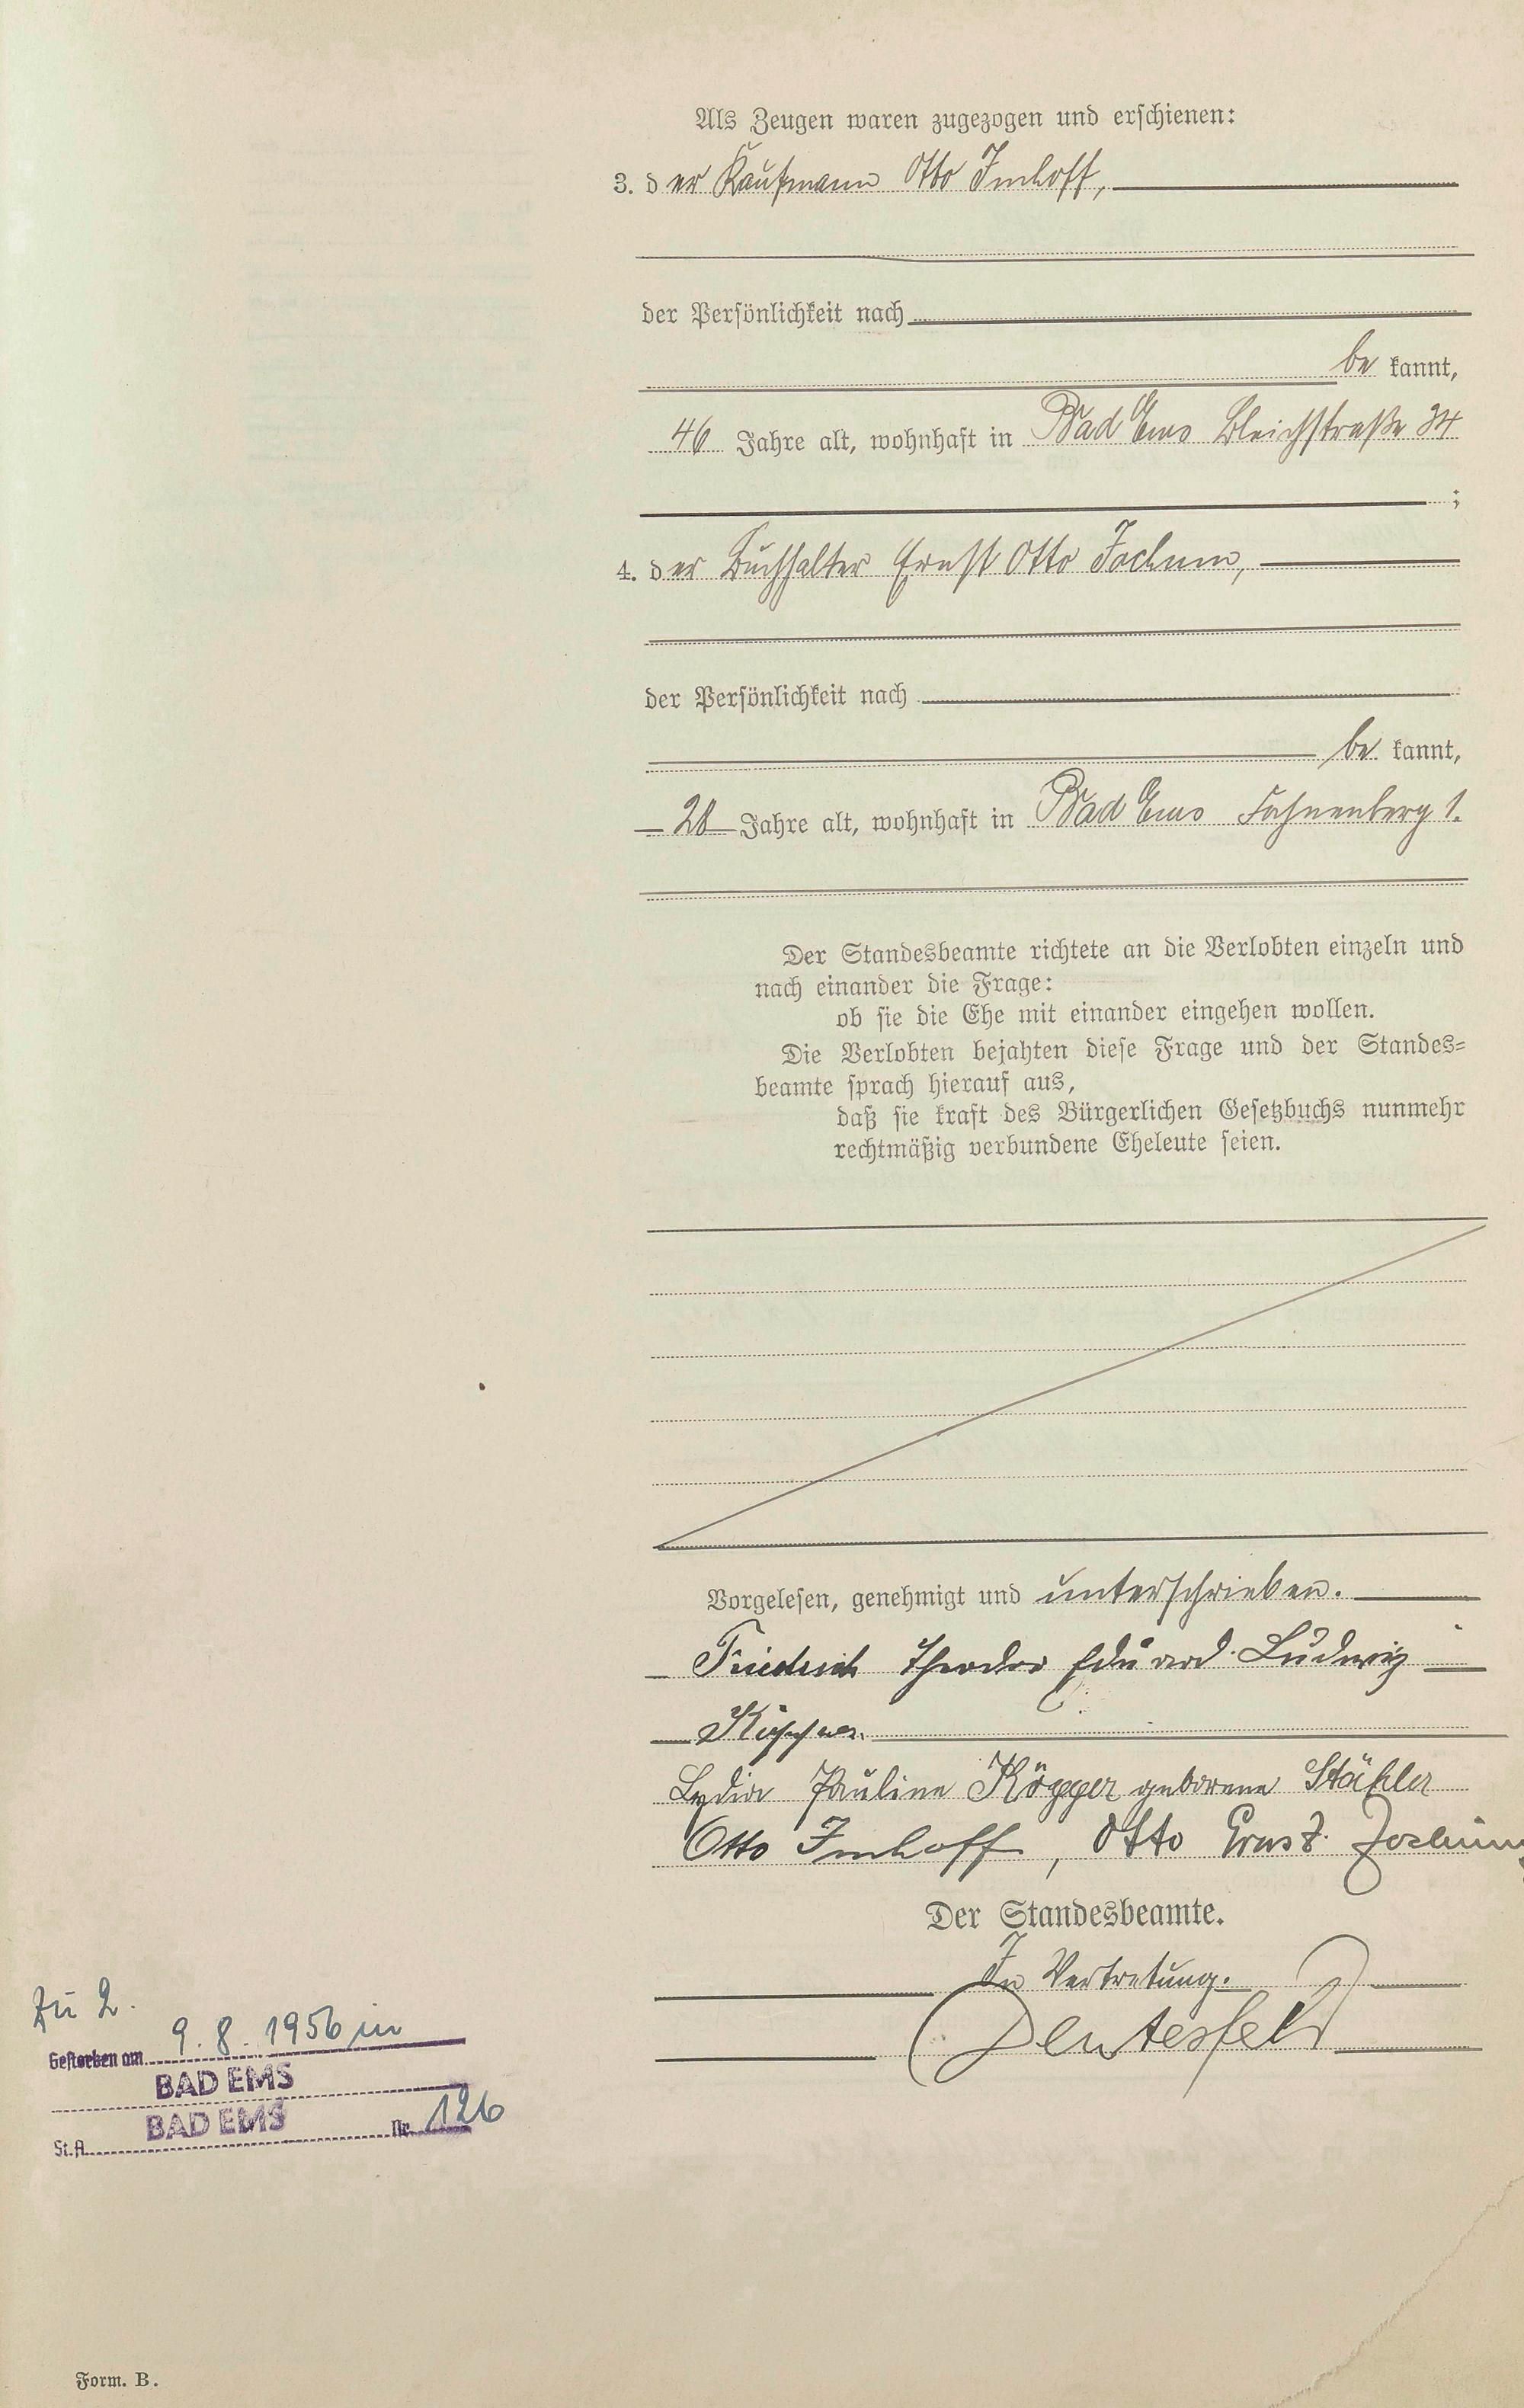 Als Zeugen waren zugezogen und erschienen:
3. der Kaufmann Otto Imhoff,
der Persönlichkeit nach
be kannt,
46 Jahre alt, wohnhaft in Bad Ems Bleichstraße 34
;
4. der Buchhalter Ernst Otto Jochum,
der Persönlichkeit nach
be kannt,
28 Jahre alt, wohnhaft in Bad Ems Fahnenberg 1.
Der Standesbeamte richtete an die Verlobten einzeln und
nach einander die Frage:
ob sie die Ehe mit einander eingehen wollen.
Die Verlobten bejahten diese Frage und der Standes=
beamte sprach hierauf aus,
daß sie kraft des Bürgerlichen Gesetzbuchs nunmehr
rechtmäßig verbundene Eheleute seien.
Vorgelesen, genehmigt und unterschrieben.
Friedrich Theodor Eduard Ludwig
Köpper.
Lydia Pauline Köpper geborene Stähler
Otto Imhoff, Otto Ernst Jochum
Der Standesbeamte.
In Vertretung.
Deutesfeld
Zu 2.
Gestorben am 9. 8. 1956 in
BAD EMS
St.A. BAD EMS Nr. 126
Form. B.